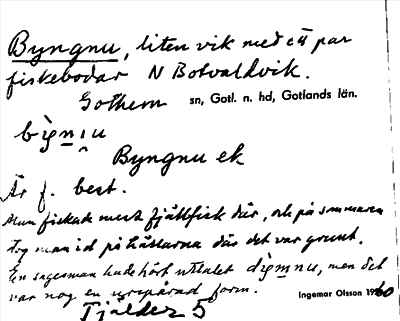 Byngnu, liten vik med ett par
fiskebodar N Botvaldvik.
Gothem sn, Gotl. n. hd, Gotlands län.
bìgnı̯u
Byngnu ek
Är f. best.
Man fiskade mest fjällfisk där, och på sommaren
tog man id på hästarna där det var grunt.
En sagesman hade hört uttalet dìgmnu, men det
var nog en urspårad form. Ingemar Olsson 1960
Tjälder 5